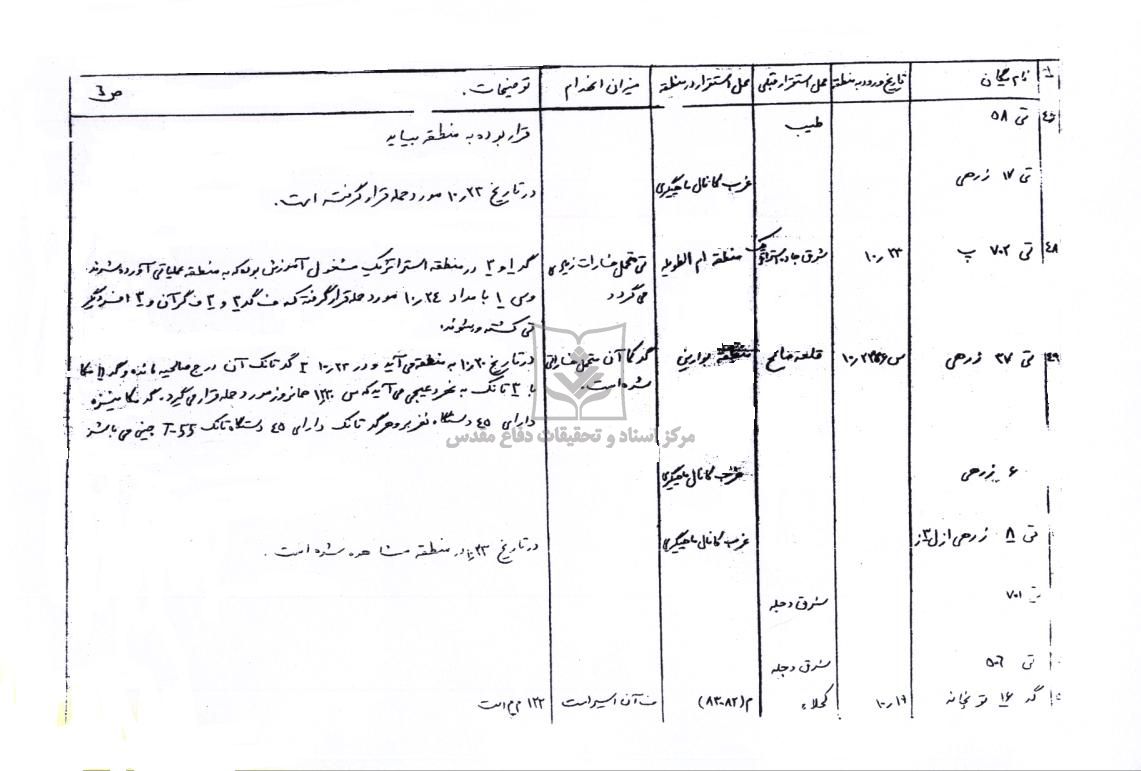 نام یگان تاریخ ورود به منطقه محل استقرار قبلی محل استقرار در منطقه میزان انهدام توضیحات . ص ۶
۴۶ تی ۵۸ طیب قرار بوده به منطقه بیاید
تی ۱۷ زرهی غرب کانال ماهیگیری در تاریخ ۱۰٫۲۳ مورد حمله قرار گرفته است.
۴۸ تی ۷۰۲ پ ۱۰٫۲۳ شرق جاده استراتژیک منطقه ام الطویله تی متحمل خسارات زیادی می گردد
گد ۱ و ۲ در منطقه استراتژیک مشغول آموزش بوده که به منطقه عملیاتی آورده شوند
وسی ۱ بامداد ۱۰٫۲۴ مورد حمله قرار گرفته که ف گد ۲ و ۲ ف گر آن و ۳ افسر دیگر
تی کشته میشوند.
۴۹ تی ۲۷ زرهی قلعه صالح بوارین گد مکا آن متحمل خساراتی شده است.
در تاریخ ۱۰٫۲۰ به منطقه می آید و در ۱۰٫۲۲ ۲ گد تانک آن در ج صالحیه مانده و گد مکا
با ۲ تانک به نهر دعیجی می آید که س همانروز مورد حمله قرار میگیرد. گد مکانیزه
دارای ۴۵ دستگاه نفربر و هر گد تانک دارای ۴۵ دستگاه تانک T-55 چینی می باشد
مرکز اسناد و تحقیقات دفاع مقدس
۶ زرهی غرب کانال ماهیگیری
تی ۸ زرهی از ل ۳ ز غرب کانال ماهیگیری در تاریخ در منطقه مشاهده شده است .
تی ۷۰۱ شرق دجله
تی ۵۰۶ شرق دجله
گد ۱۶ توپخانه ۱۰٫۱۹ کحلاء م (۸۲-۸۳) ف آن اسیر است ۱۲۲ م م است